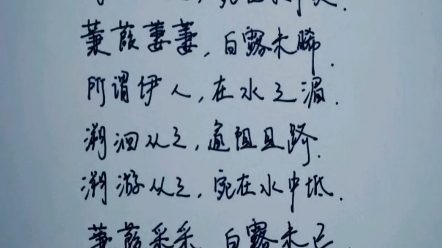 蒹葭萋萋,白露未晞.
所谓伊人,在水之湄.
溯洄从之,道阻且跻.
溯游从之,宛在水中坻.
蒹葭采采,白露未已